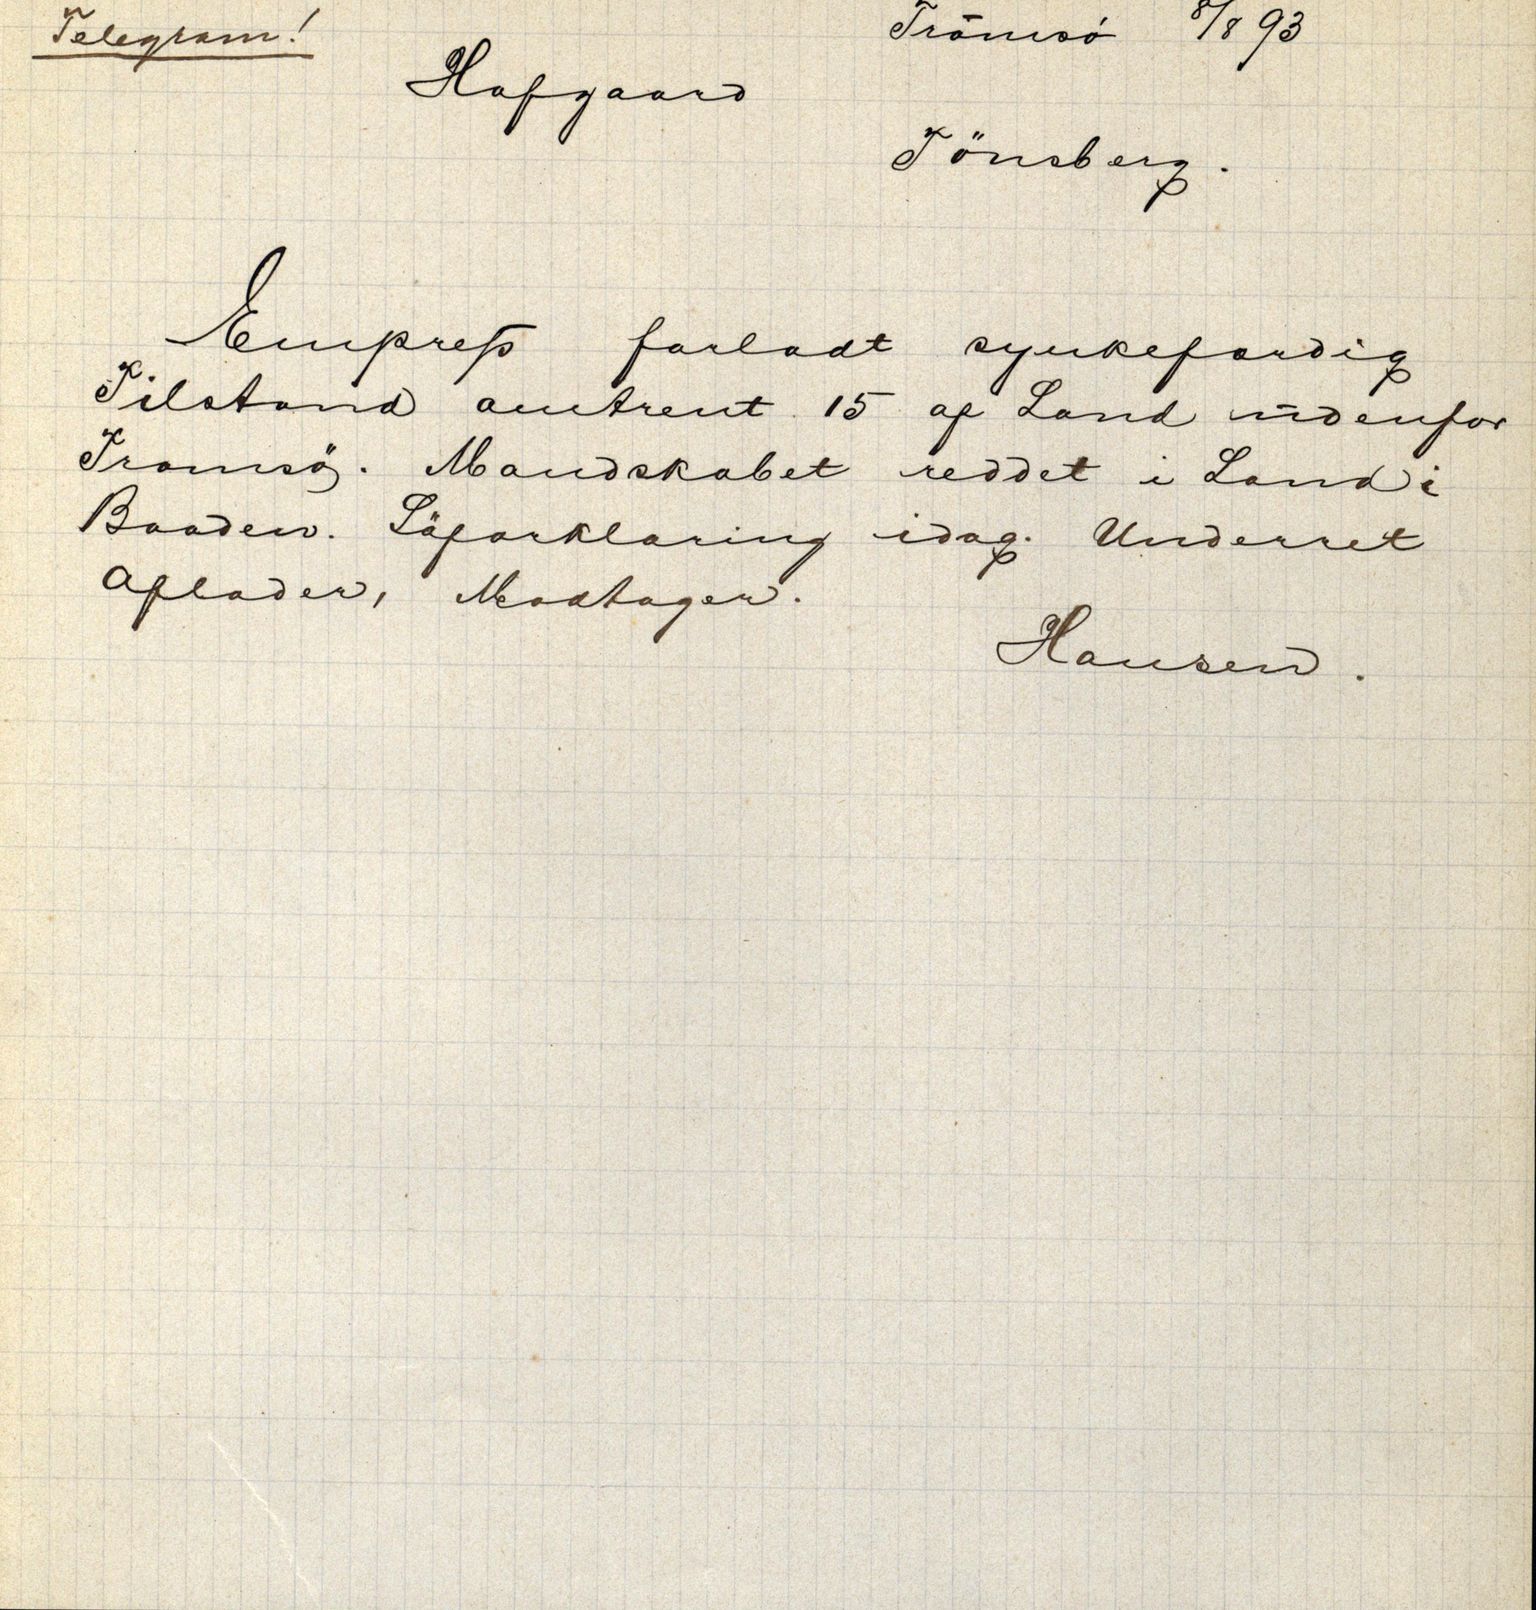 Telegram! Tromsö 8/8 93
Hofgaard
Tönsberg.
Empress forladt synkefærdig
Tilstand omtrent 15 af Land udenfor
Tromsö. Mandskabet reddet i Land i
Baaden. Söforklaring idag. Underret
Aflader, Modtager.
Hansen.